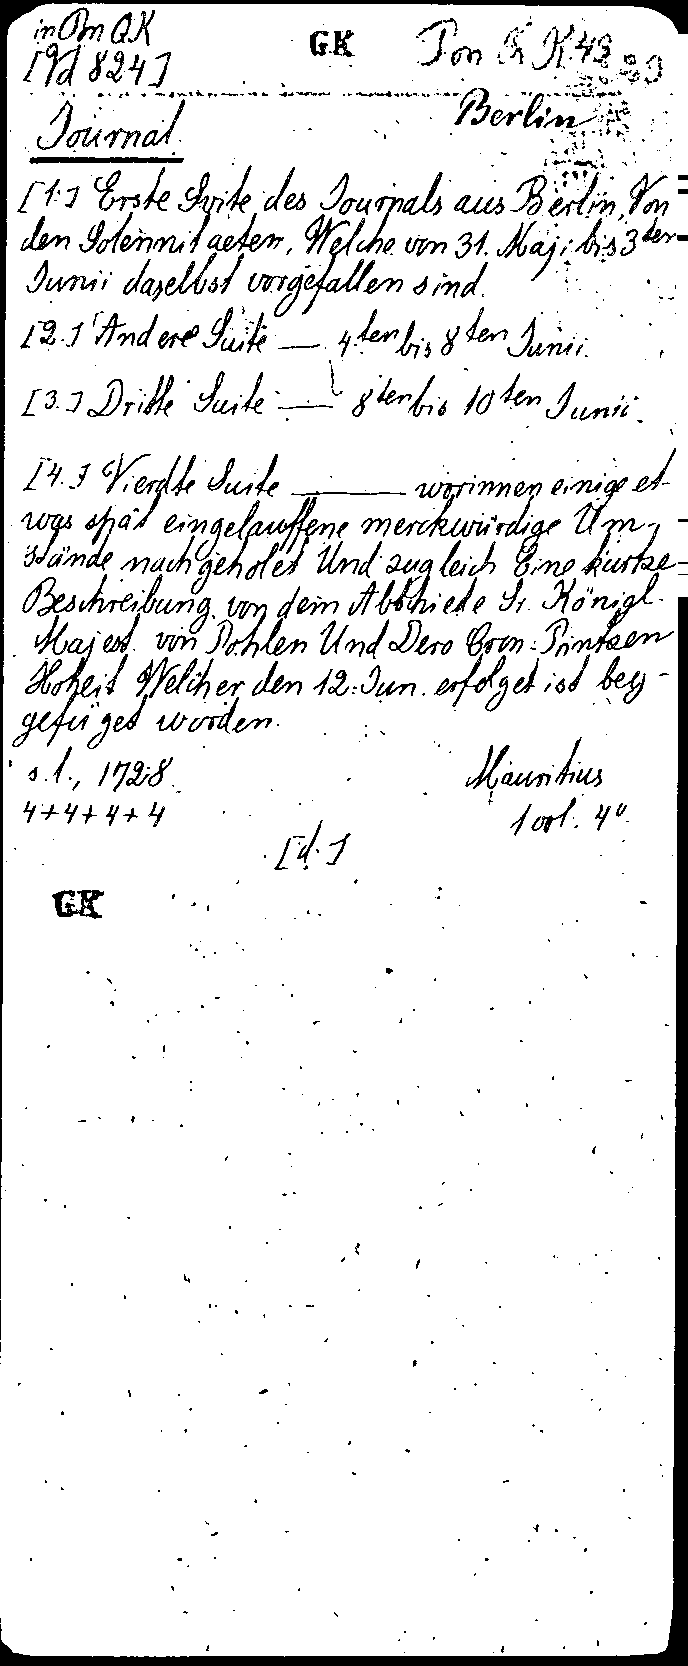 in Pon QK
GK
Pon Qu K 43
[Qd 824]
Berlin
Journal
[1.] Erste Svite des Journals aus Berlin, Von
den Solennitaeten, Welche von 31. Maji bis 3ten
Junii daselbst vorgefallen sind.
[2.] Andere Suite — 4ten bis 8ten Junii.
[3.] Dritte Suite — 8ten bis 10ten Junii.
[4.] Vierdte Suite — worinnen einige et-
was spät eingelauffene merckwürdige Um-
stände nachgeholet Und zugleich Eine kurtze
Beschreibung von dem Abschiede Sr. Königl.
Majest. von Pohlen Und Dero Cron-Printzen
Hoheit Welcher den 12. Jun. erfolget ist bey-
gefüget worden.
s.l., 1728.
Mauritius
4+4+4+4
1 vol. 4°
[d.]
GK